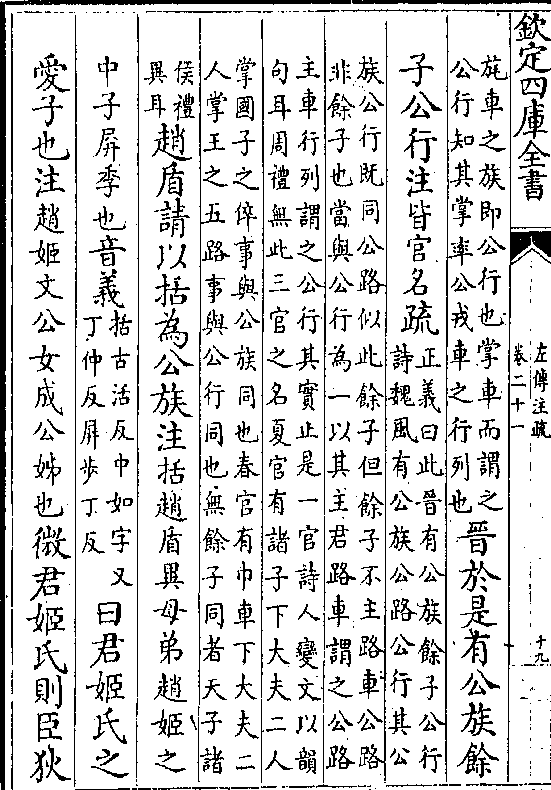 欽定四庫全書
左傳注疏
卷二十一
十九
旄車之族即公行也掌車而謂之
公行知其掌率公戎車之行列也
晉於是有公族餘
子公行注皆官名疏
正義曰此晉有公族餘子公行
詩魏風有公族公路公行其公
族公行既同公路似此餘子但餘子不主路車公路
非餘子也當與公行為一以其主君路車謂之公路
主車行列謂之公行其實止是一官詩人變文以韻
句耳周禮無此三官之名夏官有諸子下大夫二人
掌國子之倅事與公族同也春官有巾車下大夫二
人掌王之五路事與公行同也無餘子同者天子諸
侯禮
異耳
趙盾請以括為公族注括趙盾異母弟趙姬之
中子屏季也音義
括古活反中如字又
丁仲反屏步丁反
曰君姬氏之
愛子也注趙姬文公女成公姊也微君姬氏則臣狄